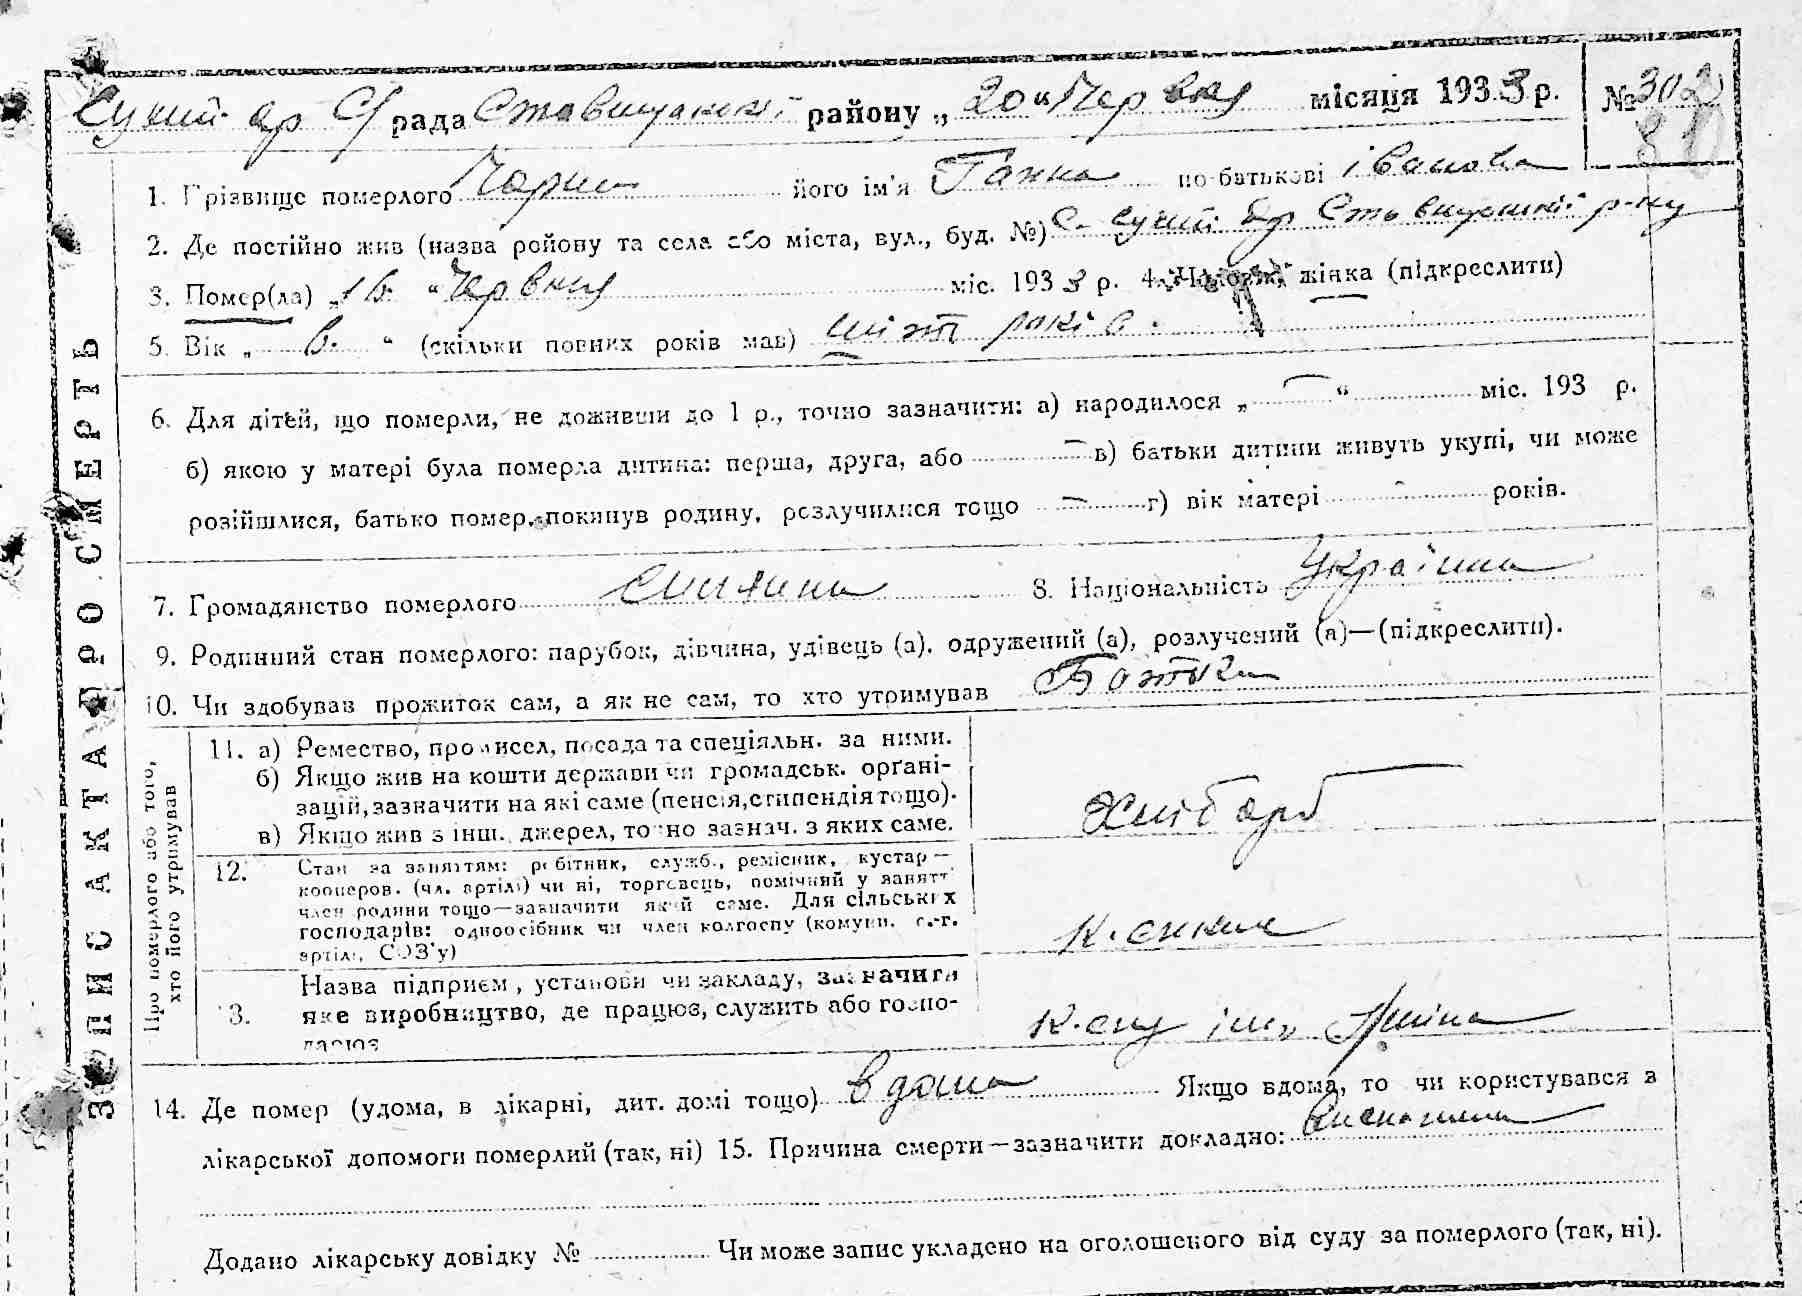 Сухий яр С/рада Ставищанськ. району „20“ Червня місяця 1933 р. № 302
1. Прізвище померлого його ім'я Ганна по-батькові Іванова
2. Де постійно жив (назва району та села або міста, вул., буд. №) с. Сухий яр Ставищанськ. р-ну
3. Помер(ла) Червня міс. 1933 р. 4. Чоловік, жінка (підкреслити)
5. Вік „6.“ (скільки повних років мав) шість років.
6. Для дітей, що померли, не доживши до 1 р., точно зазначити: а) народилося „—“ міс. 193 р.
б) якою у матері була померла дитина: перша, друга, або — в) батьки дитини живуть укупі, чи може
розійшлися, батько помер, покинув родину, розлучилися тощо — г) вік матері - років.
7. Громадянство померлого 8. Національність Україна
9. Родинний стан померлого: парубок, дівчина, удівець (а), одружений (а), розлучений (а)—(підкреслити).
10. Чи здобував прожиток сам, а як не сам, то хто утримував Батьки
ЗАПИС АКТА ПРО СМЕРТЬ
Про померлого або того, хто його утримував
11. а) Ремество, промисел, посада та спеціяльн. за ними.
б) Якщо жив на кошти держави чи громадськ. орґані-
зацій, зазначити на які саме (пенсія, стипендія тощо).
в) Якщо жив з інш. джерел, точно зазнач. з яких саме.
Хлібороб
12. Стан за заняттям: робітник, служб., ремісник, кустар—
кооперов. (чл. артілі) чи ні, торговець, помічний у занятт.
член родини тощо—зазначити який саме. Для сільських
господарів: одноосібник чи член колгоспу (комуни, с.-г.
артілі, СОЗ'у)
13. Назва підприєм., установи чи закладу, зазначити
яке виробництво, де працює, служить або госпо-
дарює
К-спу ім.
14. Де помер (удома, в лікарні, дит. домі тощо) вдома Якщо вдома, то чи користувався з
лікарської допомоги померлий (так, ні) 15. Причина смерти—зазначити докладно:
Додано лікарську довідку № Чи може запис укладено на оголошеного від суду за померлого (так, ні).